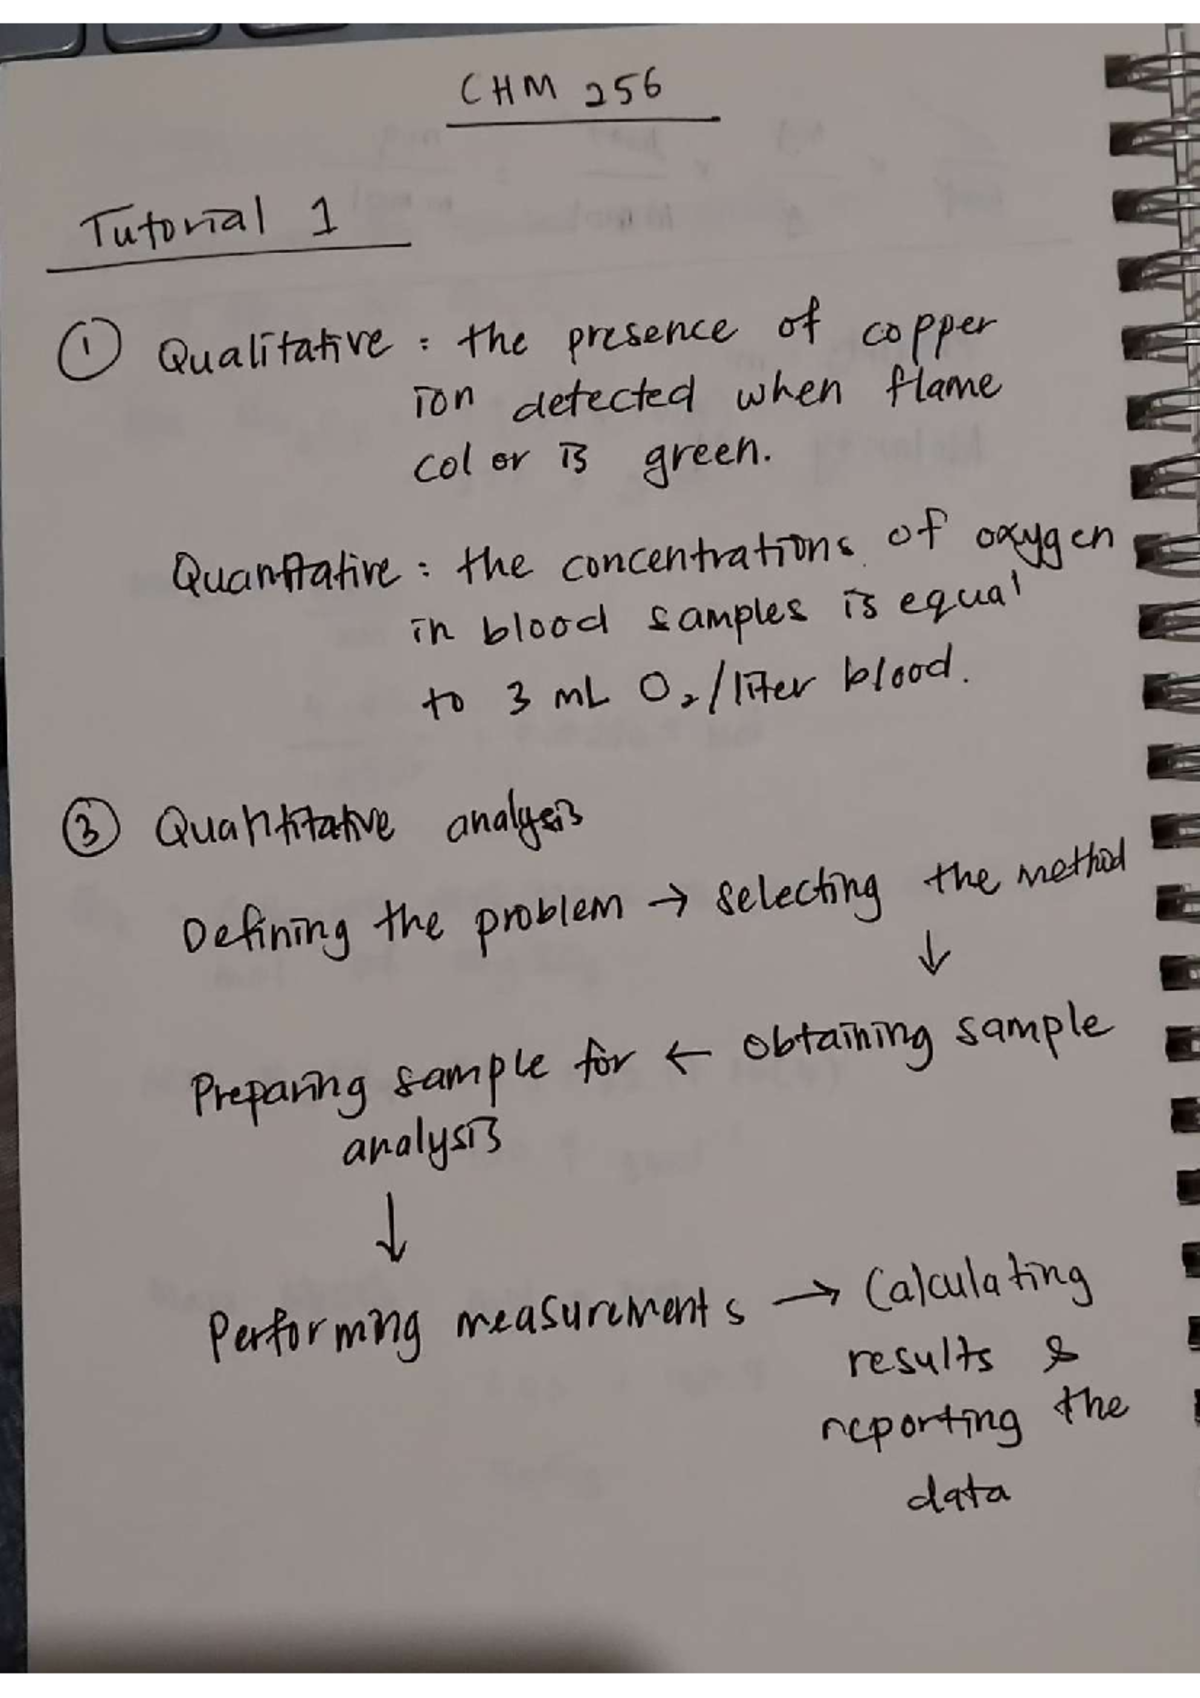 CHM 256
Tutorial 1
① Qualitative : the presence of copper
ion detected when flame
color is green.
Quantitative : the concentrations of oxygen
in blood samples is equal
to 3 mL O₂/liter blood.
③ Quantitative analysis
Defining the problem → selecting the method
↓
Preparing sample for ← obtaining sample
analysis
↓
Performing measurements → Calculating
results &
reporting the
data